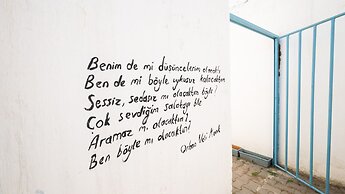 Benim de mi düşüncelerim olacaktı
Ben de mi böyle uykusuz kalacaktım
Sessiz, sedasız mı olacaktım böyle?
Çok sevdiğim salatayı bile
Aramaz mı olacaktım?
Ben böyle mi olacaktım?
Orhan Veli Kanık